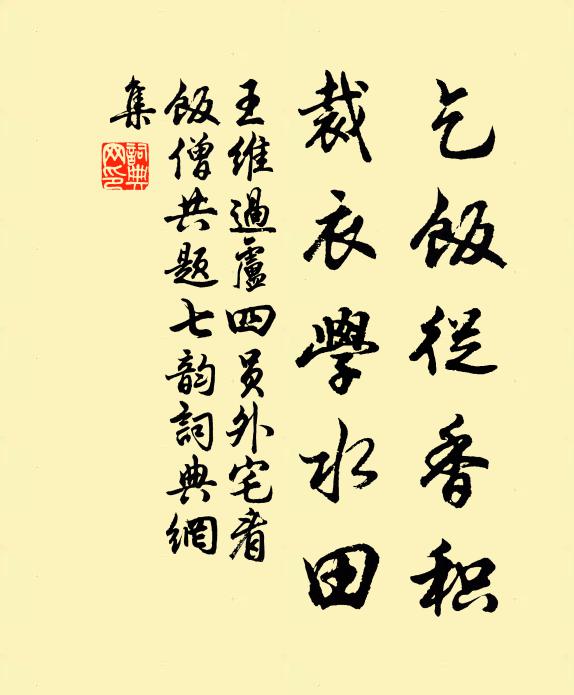 乞飯從香积
裁衣學水田
王维過盧四员外宅看
饭僧共题七韵詞典網
集
詞典
网印